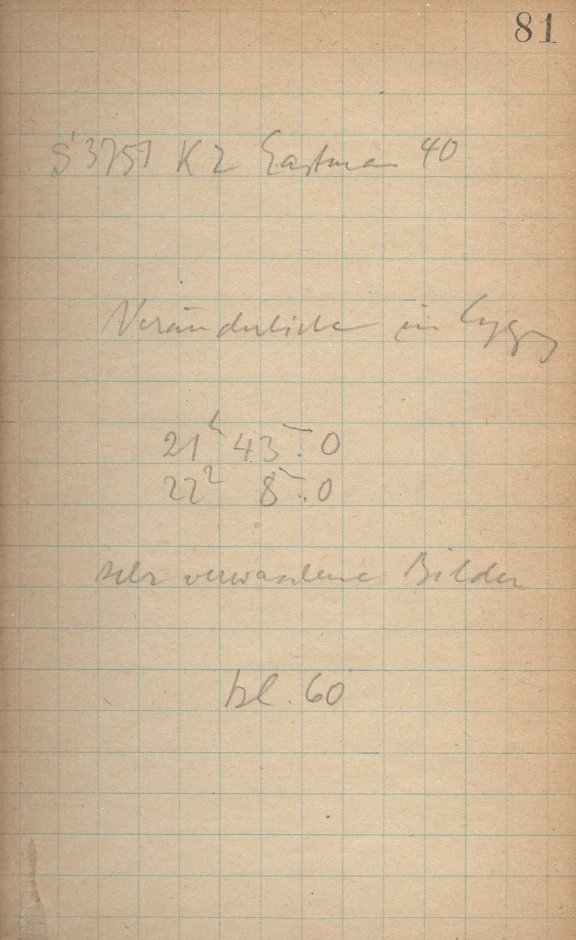 81
S 3751 K 2 Eastman 40
Veränderliche im Cygn
21ʰ 43ᵐ.0
22ʰ 8ᵐ.0
sehr verwaschene Bilder
bl. 60